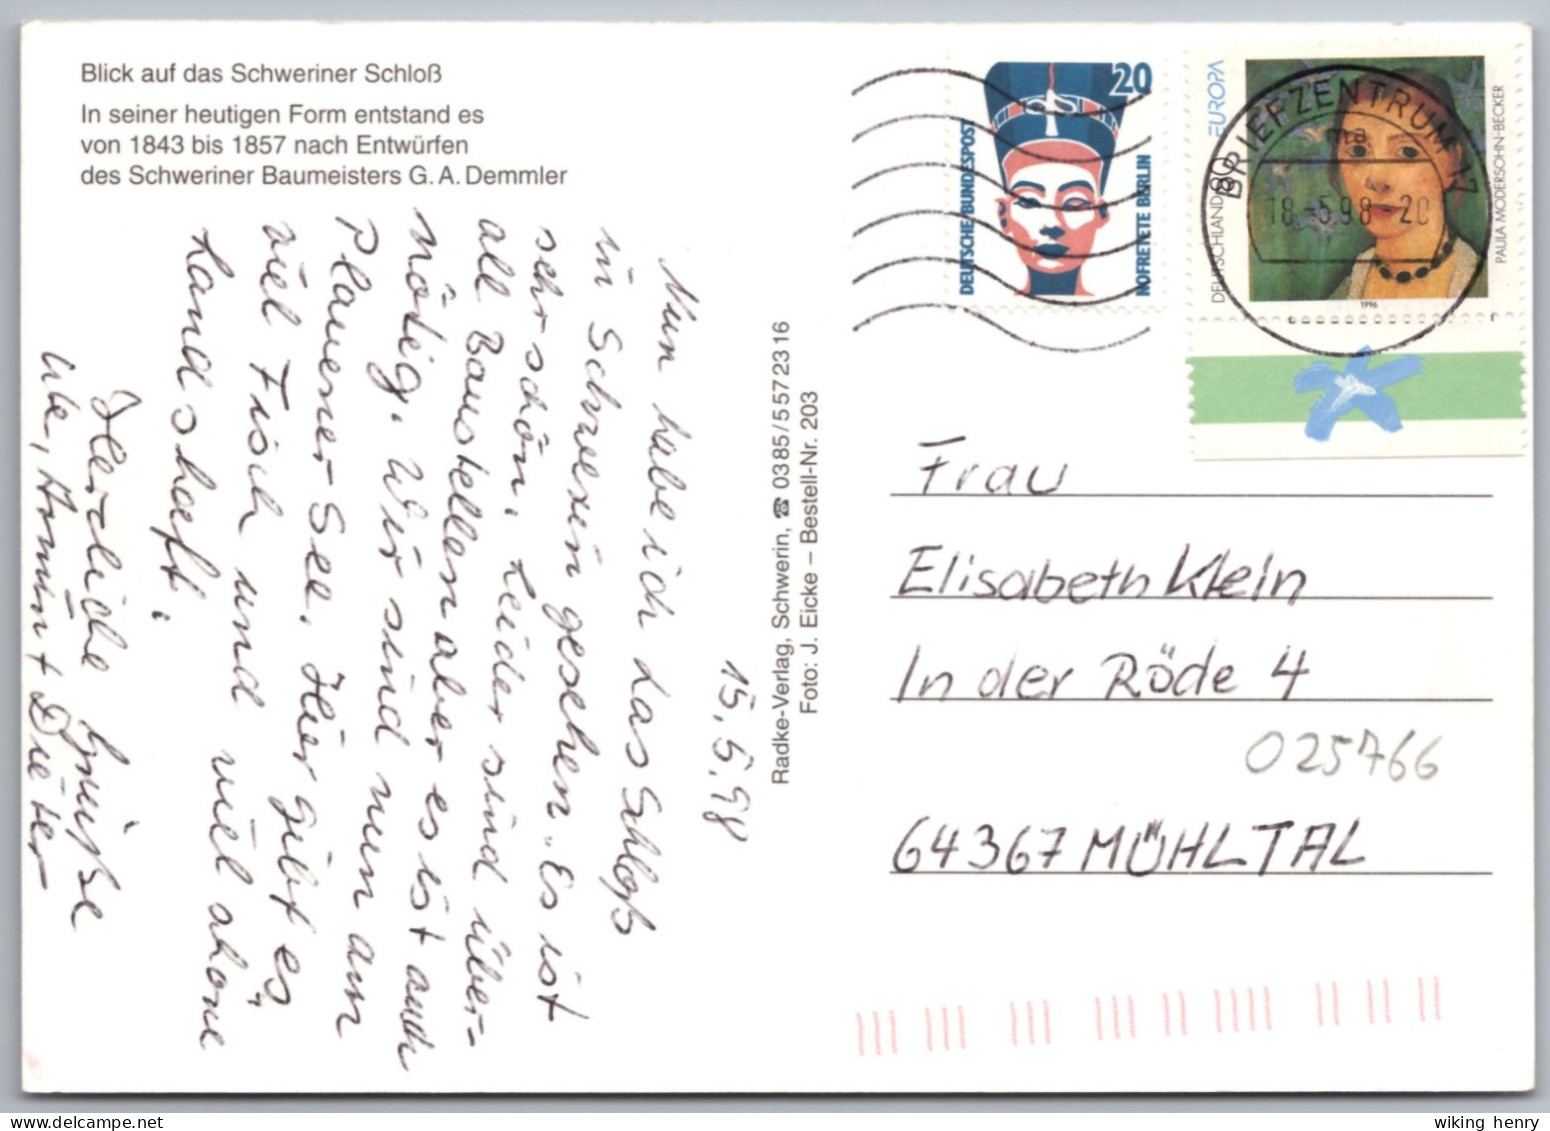 Blick auf das Schweriner Schloß
In seiner heutigen Form entstand es
von 1843 bis 1857 nach Entwürfen
des Schweriner Baumeisters G. A. Demmler
15.5.98
Nun habe ich das Schloß
in Schwerin gesehen. Es ist
sehr schön. Leider sind über-
all Baustellen aber es ist auch
nötig. Wir sind nun am
Plauener See. Hier gibt es
viel Fisch und viel schöne
Landschaft.
Herzliche Grüße
Ute, Dieter
Radke-Verlag, Schwerin, ☎ 0385/5572316
Foto: J. Eicke – Bestell-Nr. 203
20
DEUTSCHE BUNDESPOST
NOFRETETE BERLIN
EUROPA
DEUTSCHLAND 80
PAULA MODERSOHN-BECKER
1996
BRIEFZENTRUM 17
ma
18.-5.98-20
Frau
Elisabeth Klein
In der Röde 4
025766
64367 MÜHLTAL
wiking henry